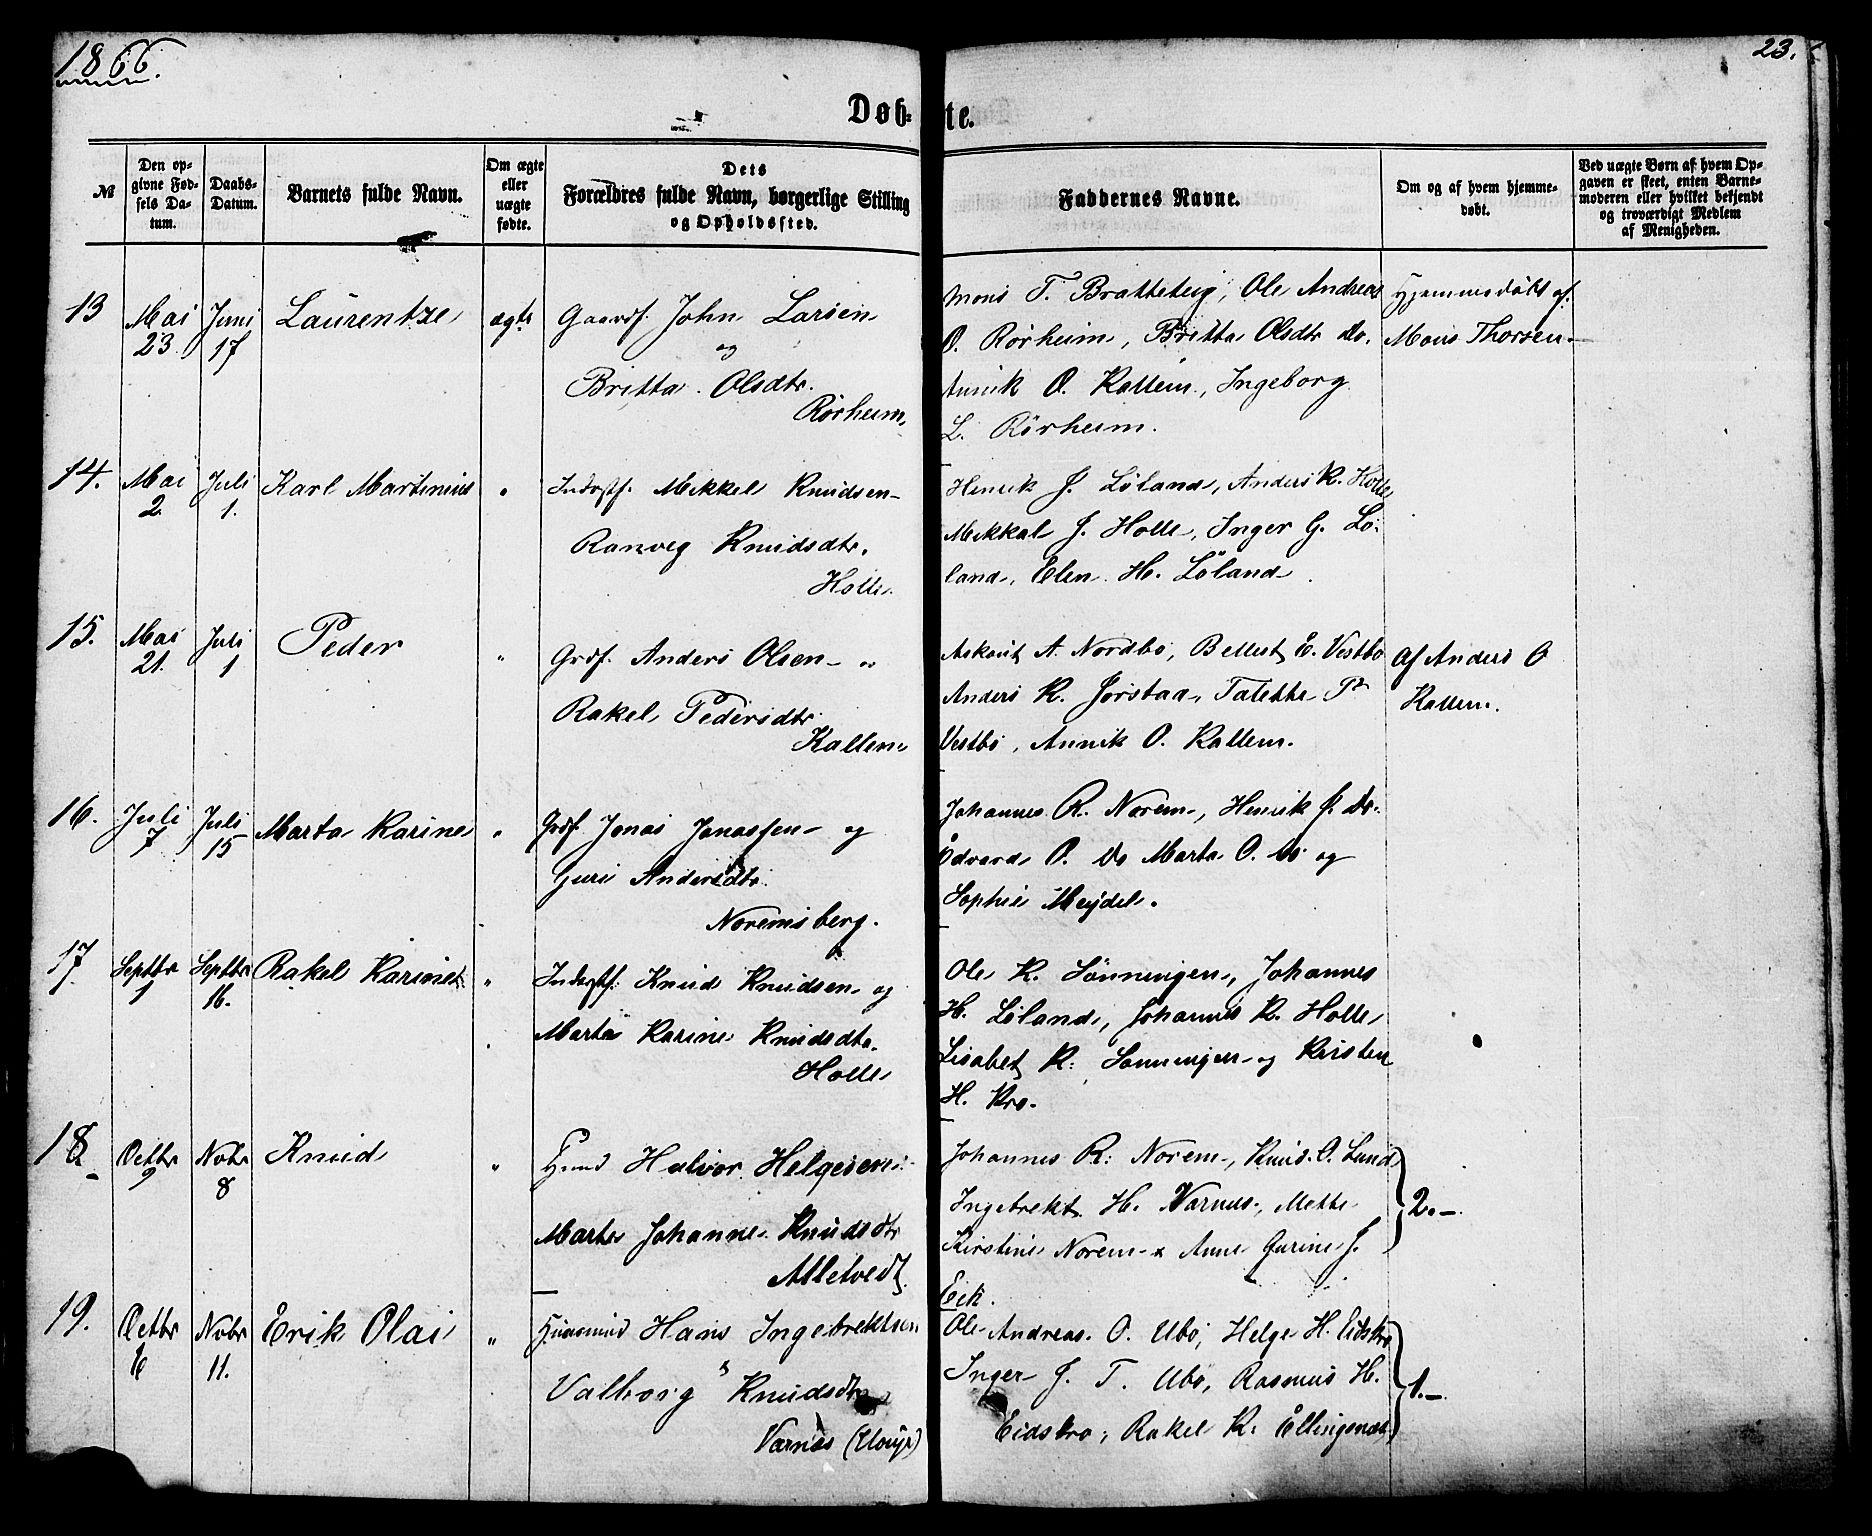 1866.
23.
Døb-te.
№
Den op-
givne Fød-
sels Da-
tum.
Daabs-
Datum.
Barnets fulde Navn.
Om ægte
eller
uægte
fødte.
Dets
Forældres fulde Navn, borgerlige Stilling
og Opholdssted.
Faddernes Navne.
Om og af hvem hjemme-
døbt.
Ved uægte Børn af hvem Op-
gaven er skeet, enten Barne-
moderen eller hvilket bekjendt
og troværdigt Medlem
af Menigheden.
13
Mai
23.
Juni
17
Laurentze
ægte
Gaardf. John Larsen
og
Britta Olsdtr.
Rørheim
Mons T. Bratteteig, Ole Andreas
O. Rørheim, Britta Olsdtr do.
Annik O. Kallem, Ingeborg
L. Rørheim.
Hjemmedøbt af
Mons Thorsen
14.
Mai
2.
Juli
1.
Karl Martinius
"
Inderstf. Mikkel Knudsen
Ranveg Knudsdtr.
Holle
Henrik J. Løland, Anders K. Holle
Mikkal J. Holle, Inger G. Lø-
land, Elen H. Løland.
15.
Mai
21.
Juli
1
Peder
"
Grdf. Anders Olsen og
Rakel Pedersdtr
Kallem
Askaut A. Nordbø, Bellest E. Vestbø
Anders K. Jørstad, Talette P
Vestbø, Annik O. Kallem.
Af Anders O
Kallem.
16.
Juli
7
Juli
15
Marta Karine
"
Grdf. Jonas Jonassen og
Guri Andersdtr.
Noremsberg.
Johannes R. Norem, Henrik J. do.
Edvard O. do Marta O. do og
Sophie Meydel.
17.
Septbr
1
Septbr
16.
Rakel Karine
"
Inderstf. Knud Knudsen og
Marta Karine Knudsdtr.
Holle
Ole K. Sønningen, Johannes
H. Løland, Johannes K. Holle
Lisabet K. Sønningen og Kristen
H. Kro.
18
Octbr
9
Nobr
8
Knud
"
Hmd Halvor Helgesen
Marte Johanne Knudsdtr
Alletvedt
Johannes R. Norem, Knud O. Lund
Ingebrekt H. Varnes, Mette
Kirstine Norem & Anne Gurine J.
Eek.
2.-
19.
Octbr
6
Nobr
11.
Erik Olai
"
Huusmd Hans Ingebrektsen
Valborg Knudsdtr
Varnes
Ole Andreas O. Ubø, Helge H. Eidskro
Inger J. T. Ubø, Rasmus H.
Eidskro, Rakel K.
1.-